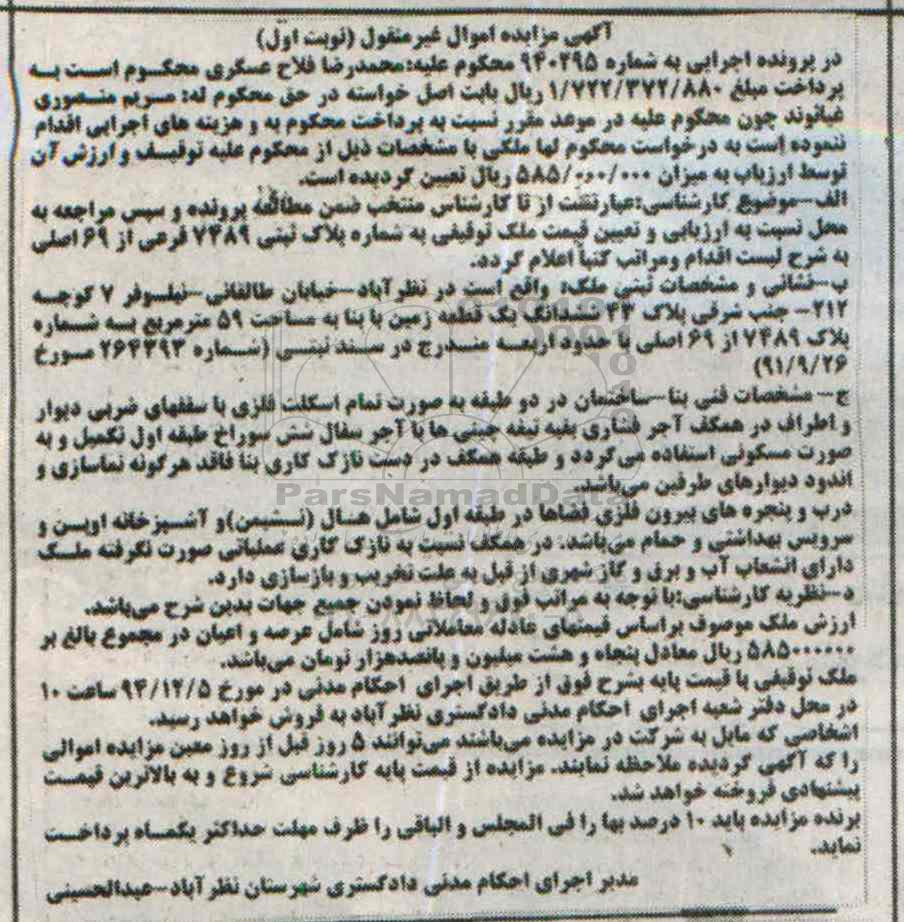 آگهی مزایده اموال غیر منقول (نوبت اول)
در پرونده اجرایی به شماره ۹۴۰۲۹۵ محکوم علیه: محمدرضا فلاح عسگری محکوم است به
پرداخت مبلغ ۱/۷۲۲/۳۷۲/۸۸۰ ریال بابت اصل خواسته در حق محکوم له: مریم منصوری
غیانوند چون محکوم علیه در موعد مقرر نسبت به پرداخت محکوم به و هزینه های اجرایی اقدام
ننموده است به درخواست محکوم لها ملکی با مشخصات ذیل از محکوم علیه توقیف و ارزش آن
توسط ارزیاب به میزان ۵۸۵/۰۰۰/۰۰۰ ریال تعیین گردیده است.
الف-موضوع کارشناسی: عبارتست از تا کارشناس منتخب ضمن مطالعه پرونده و سپس مراجعه به
محل نسبت به ارزیابی و تعیین قیمت ملک توقیفی به شماره پلاک ثبتی ۷۴۸۹ فرعی از ۶۹ اصلی
به شرح لیست اقدام ومراتب کتبا اعلام گردد.
ب-نشانی و مشخصات ثبتی ملک: واقع است در نظرآباد-خیابان طالقانی-نیلوفر ۷ کوچه
۲۱۲- جنب شرقی پلاک ۴۳ ششدانگ یک قطعه زمین با بنا به مساحت ۵۹ مترمربع به شماره
پلاک ۷۴۸۹ از ۶۹ اصلی با حدود اربعه مندرج در سند ثبتی (شماره ۲۶۴۳۹۳ مورخ
۹۱/۹/۲۶)
ج- مشخصات فنی بنا-ساختمان در دو طبقه به صورت تمام اسکلت فلزی با سقفهای ضربی دیوار
و اطراف در همکف آجر فشاری بقیه تیغه چینی ها با آجر سفال شش سوراخ طبقه اول تکمیل و به
صورت مسکونی استفاده می گردد و طبقه همکف در دست نازک کاری بنا فاقد هرگونه نماسازی و
اندود دیوارهای طرفین می‌باشد.
ParsNamadData
درب و پنجره های بیرون فلزی فضاها در طبقه اول شامل هال (نشیمن)و آشپزخانه اوپن و
سرویس بهداشتی و حمام می‌باشد. در همکف نسبت به نازک کاری عملیاتی صورت نگرفته ملک
دارای انشعاب آب و برق و گاز شهری از قبل به علت تخریب و بازسازی دارد.
د-نظریه کارشناسی: با توجه به مراتب فوق و لحاظ نمودن جمیع جهات بدین شرح می‌باشد.
ارزش ملک موصوف براساس قیمتهای عادله معاملاتی روز شامل عرصه و اعیان در مجموع بالغ بر
۵۸۵۰۰۰۰۰۰ ریال معادل پنجاه و هشت میلیون و پانصدهزار تومان می‌باشد.
ملک توقیفی با قیمت پایه بشرح فوق از طریق اجرای احکام مدنی در مورخ ۹۴/۱۲/۵ ساعت ۱۰
در محل دفتر شعبه اجرای احکام مدنی دادگستری نظرآباد به فروش خواهد رسید.
اشخاصی که مایل به شرکت در مزایده می‌باشند می‌توانند ۵ روز قبل از روز معین مزایده اموالی
را که آگهی گردیده ملاحظه نمایند. مزایده از قیمت پایه کارشناسی شروع و به بالاترین قیمت
پیشنهادی فروخته خواهد شد.
برنده مزایده باید ۱۰ درصد بها را فی المجلس و الباقی را ظرف مهلت حداکثر یکماه پرداخت
نماید.
مدیر اجرای احکام مدنی دادگستری شهرستان نظرآباد-عبدالحسینی